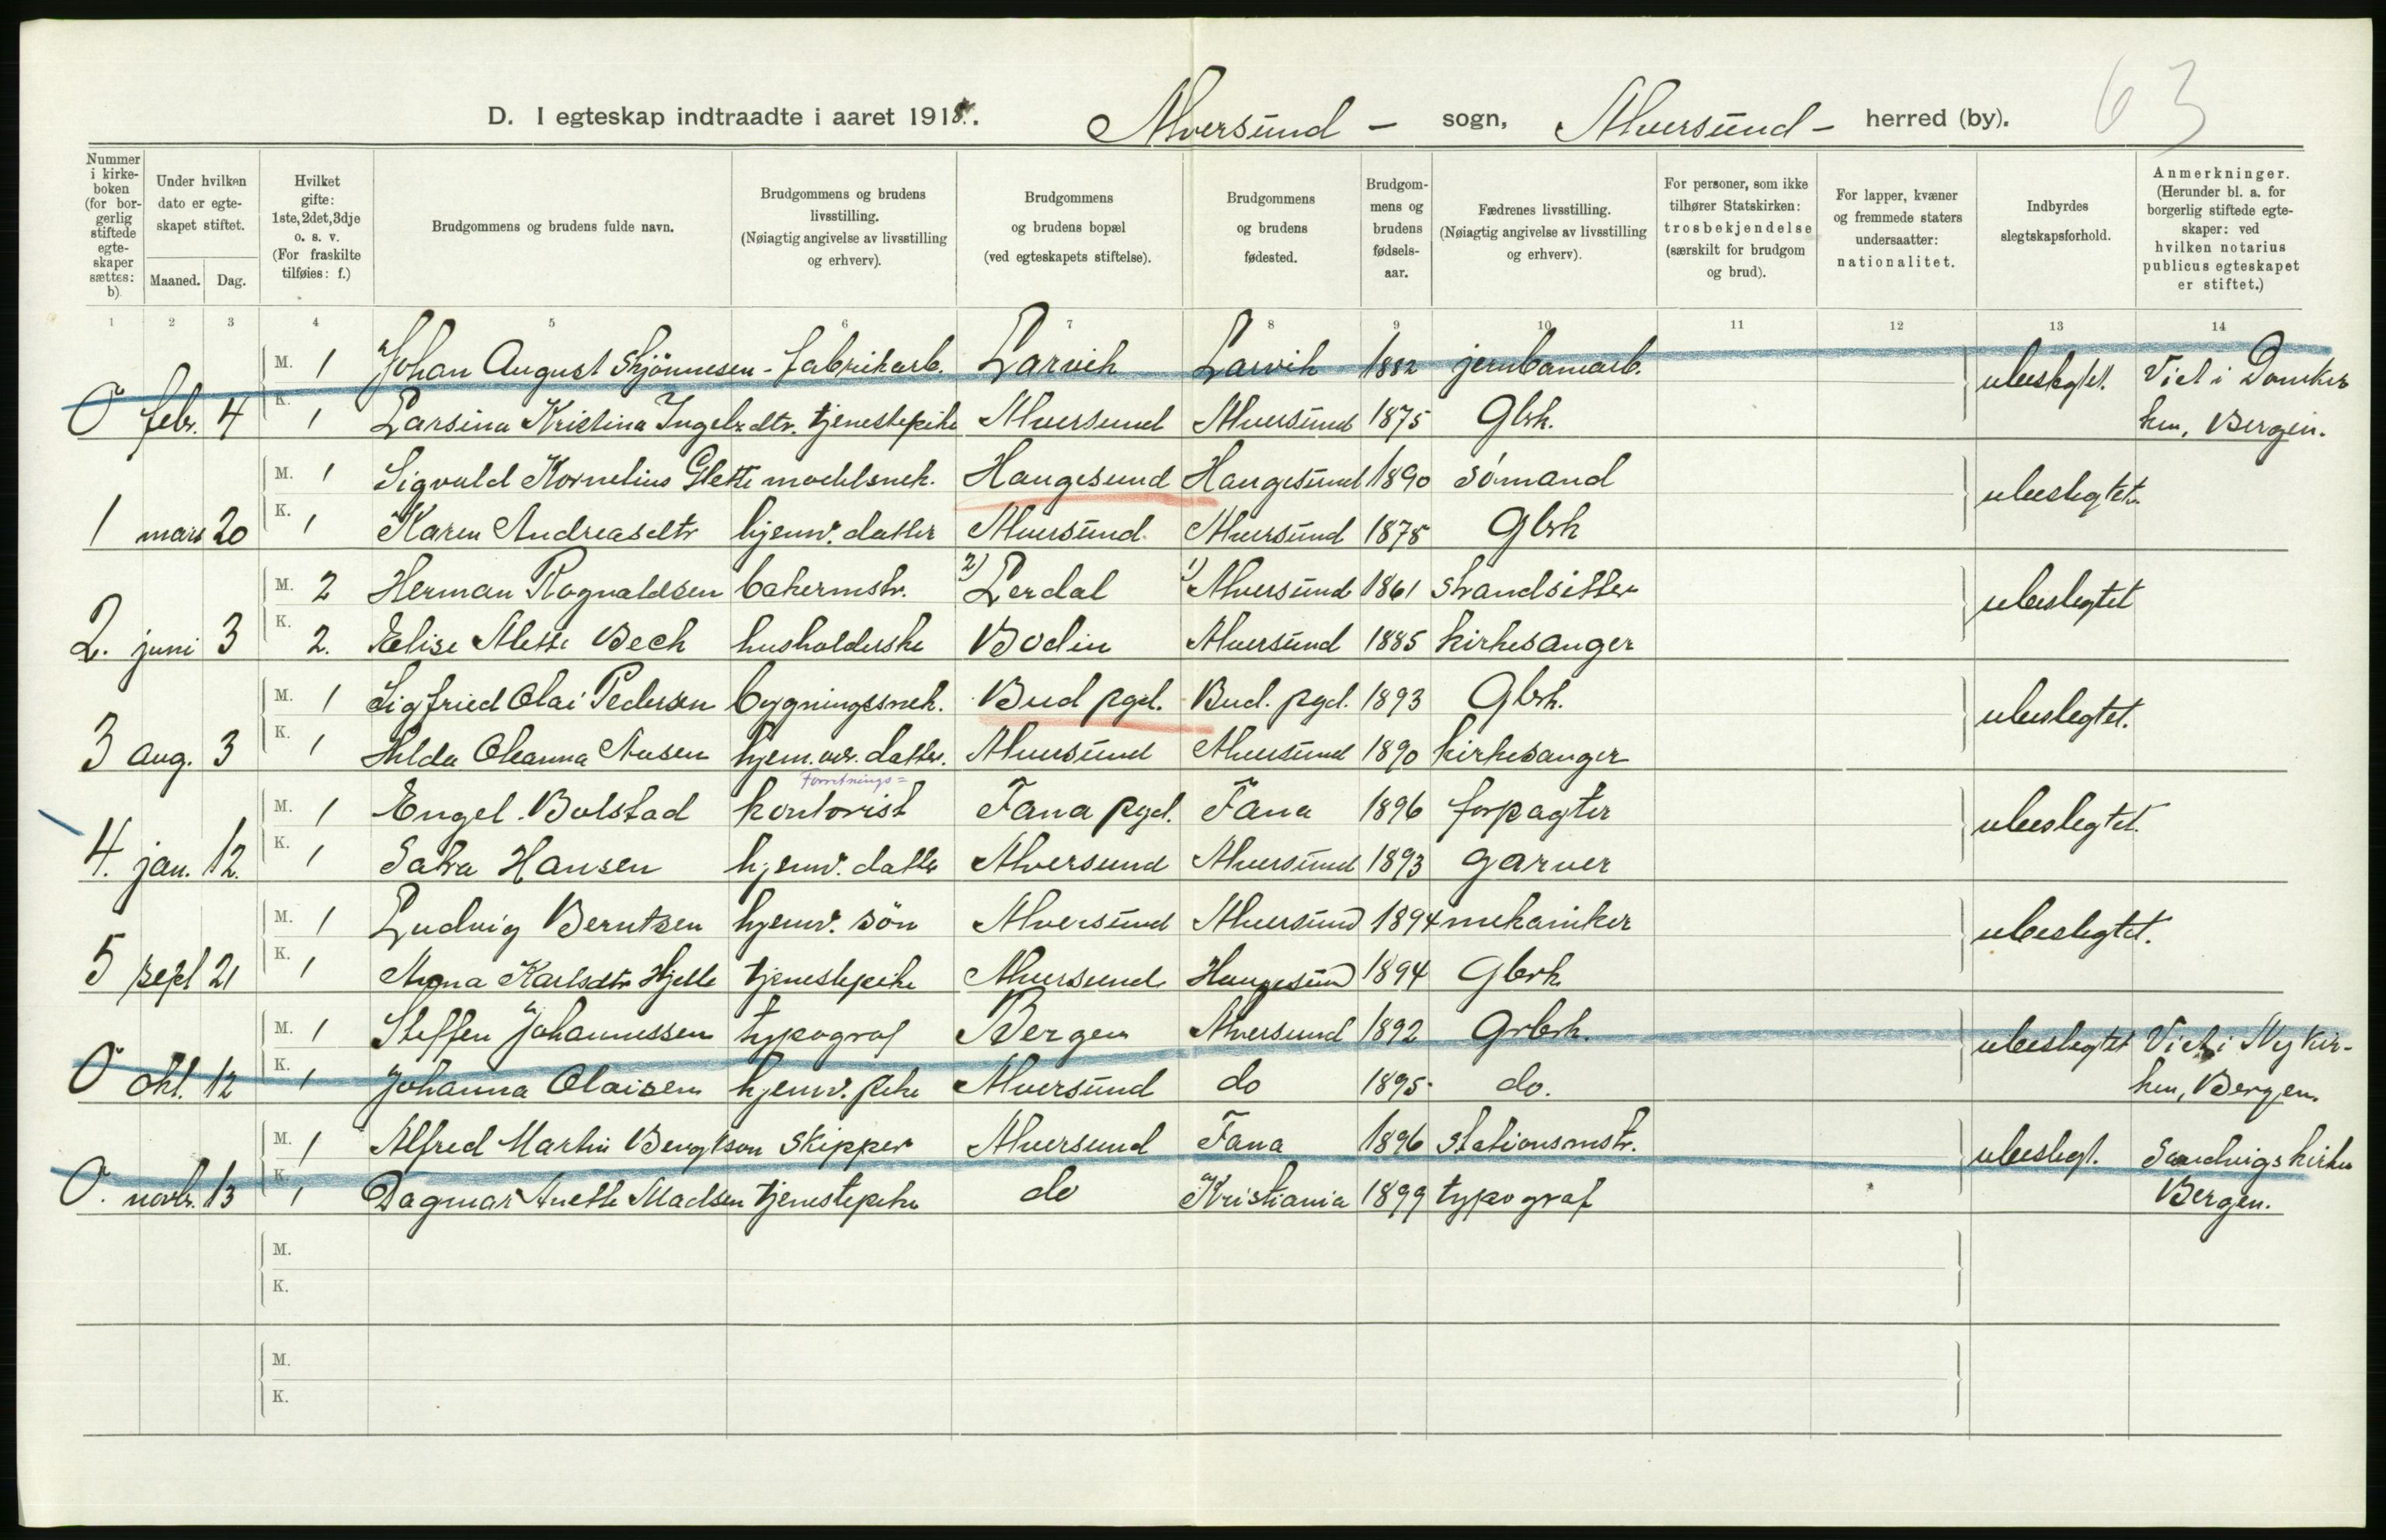 63
D. I egteskap indtraadte i aaret 1918. Alversund - sogn, Alversund - herred (by).
Nummer i kirke-boken (for bor-gerlig stiftede egte-skaper sættes: b).
Under hvilken dato er egte-skapet stiftet.
Maaned. Dag.
Hvilket gifte: 1ste, 2det, 3dje o. s. v. (For fraskilte tilføies: f.)
Brudgommens og brudens fulde navn.
Brudgommens og brudens livsstilling. (Nøiagtig angivelse av livsstilling og erhverv).
Brudgommens og brudens bopæl (ved egteskapets stiftelse).
Brudgommens og brudens fødested.
Brudgom-mens og brudens fødsels-aar.
Fædrenes livsstilling. (Nøiagtig angivelse av livsstilling og erhverv).
For personer, som ikke tilhører Statskirken: trosbekjendelse (særskilt for brudgom og brud).
For lapper, kvæner og fremmede staters undersaatter: nationalitet.
Indbyrdes slegtskapsforhold.
Anmerkninger. (Herunder bl. a. for borgerlig stiftede egte-skaper: ved hvilken notarius publicus egteskapet er stiftet.)
1 2 3 4 5 6 7 8 9 10 11 12 13 14
M. 1 Johan August Skjönnesen - fabrikarb. Larvik Larvik 1882 jernbanearb. ubeslegtet. Viet i Domkir
0 febr. 4 K. 1 Larsina Kristina Ingebr.dtr. tjenestepike Alversund Alversund 1875 Gbrk. ken, Bergen.
M. 1 Sigvald Kornelius Glette modelsnek. Haugesund Haugesund 1890 sömand ubeslegtet.
1 mars 20 K. 1 Karen Andreasdtr hjemv. datter Alversund Alversund 1878 Gbrk
M. 2 Herman Rognaldsen bakermstr. 2) Lerdal 1) Alversund 1861 strandsitter ubeslegtet
2. juni 3 K. 2. Elise Alette Bech husholderske Bodin Alversund 1885 kirkesanger
M. 1 Sigfried Olai Pedersen bygningssnek. Bud pgd. Bud. pgd. 1893 Gbrk. ubeslegtet.
3 aug. 3 K. 1 Hilda Oleanna Aasen hjem.ver. datter. Alversund Alversund 1890 kirkesanger
Forretnings=
M. 1 Engel Bolstad kontorist Fana pgd. Fana 1896 forpagter ubeslegtet.
4. jan. 12. K. 1 Salva Hansen hjemv. datter Alversund Alversund 1893 garver
M. 1 Ludvig Berntsen hjemv. sön Alversund Alversund 1894 mekaniker ubeslegtet.
5 sept 21 K. 1 Magna Karlsdtr Hjelle tjenestepike Alversund Haugesund 1894 Gbrk.
M. 1 Steffen Johannessen typograf Bergen Alversund 1892 Grbrk. ubeslegtet Viet i Nykir-
0 okt. 12 K. 1 Johanna Olaisen hjemv. pike Alversund do 1895 do. ken, Bergen.
M. 1 Alfred Martin Bengtson skipper Alversund Fana 1896 stationsmstr. ubeslegt. Sandvigskirken
0. novbr. 13 K. 1 Dagmar Anette Madsen tjenestepike do Kristiania 1899 typograf Bergen.
M.
K.
M.
K.